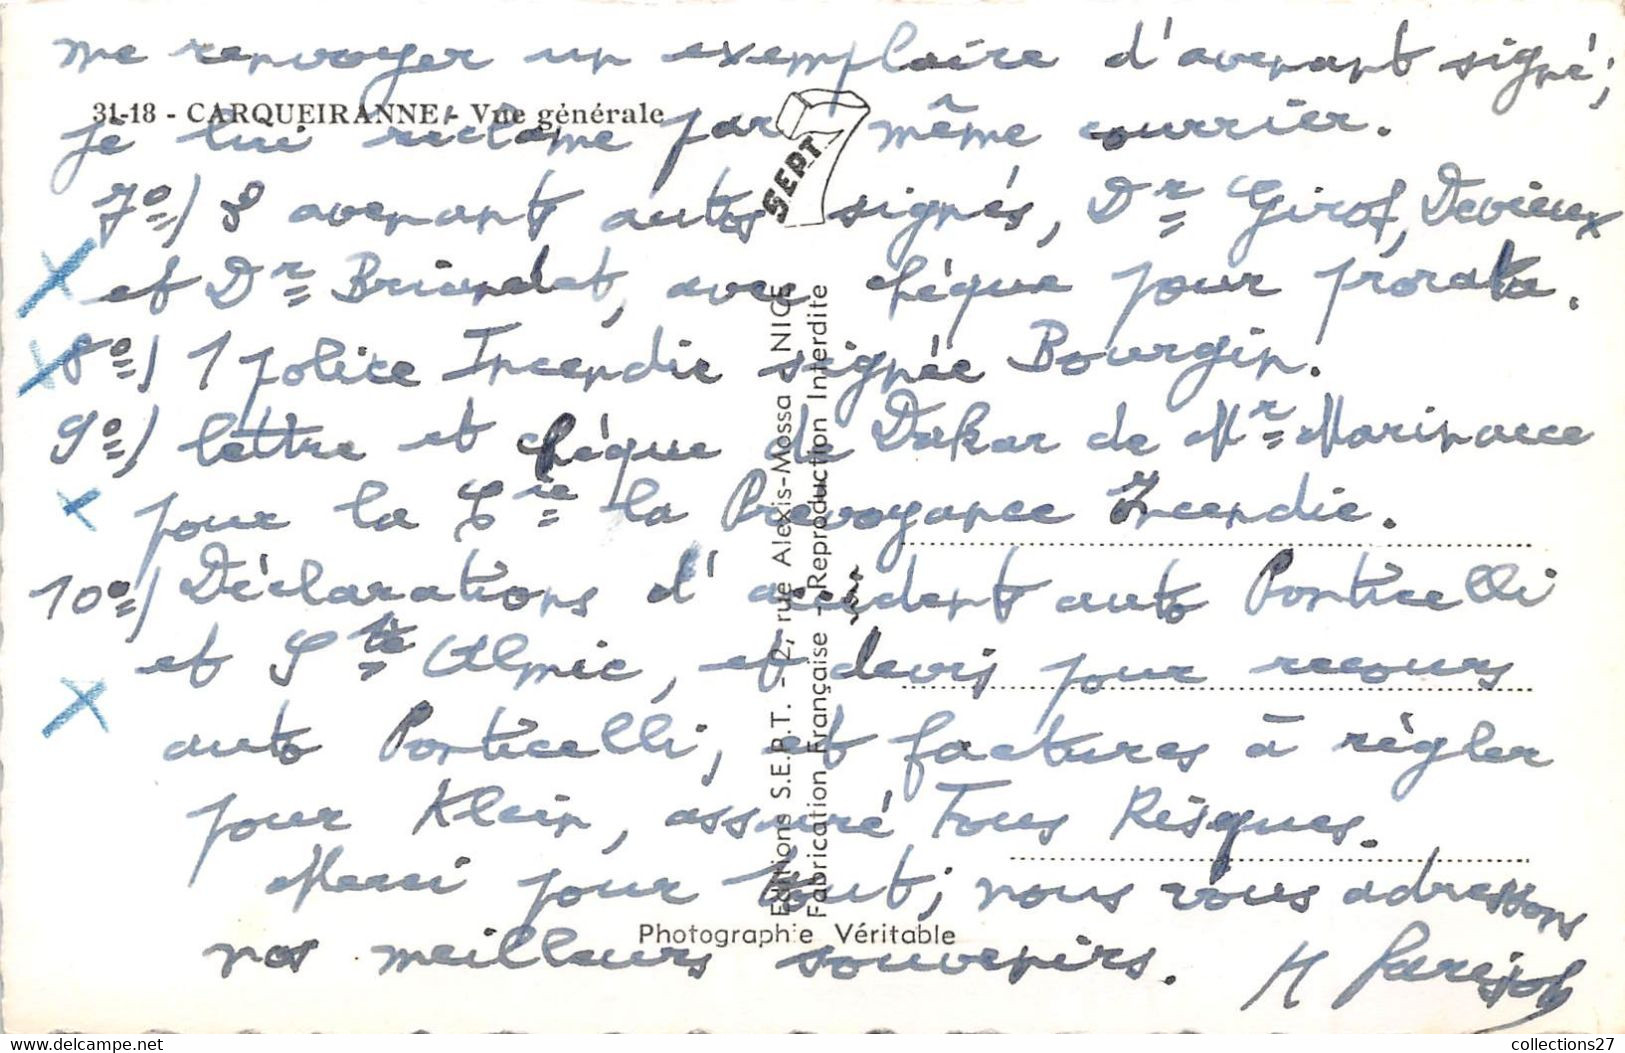 me renvoyer un exemplaire d'avenant signé;
31-18 - CARQUEIRANNE - Vue générale
je lui réclame par même courrier.
SEPT
7º) avenants autos signés, Dr Girof, Devieux
et Dr Briandet, avec chèque pour prorata.
8º) 1 police Incendie signée Bourgin.
9º) lettre et chèque de Dakar de Mr
pour la Cie la Prévoyance Incendie.
10º) Déclarations d'accident auto Ponticelli
et Sté Almic, et devis pour recours
auto Ponticelli, et factures à régler
pour Klein, assuré Tous Risques.
Merci pour tout; nous vous adressons
nos meilleurs souvenirs.
Editions S.E.P.T. - 2, rue Alexis-Mossa NICE
Fabrication Française - Reproduction Interdite
Photographie Véritable
collections27